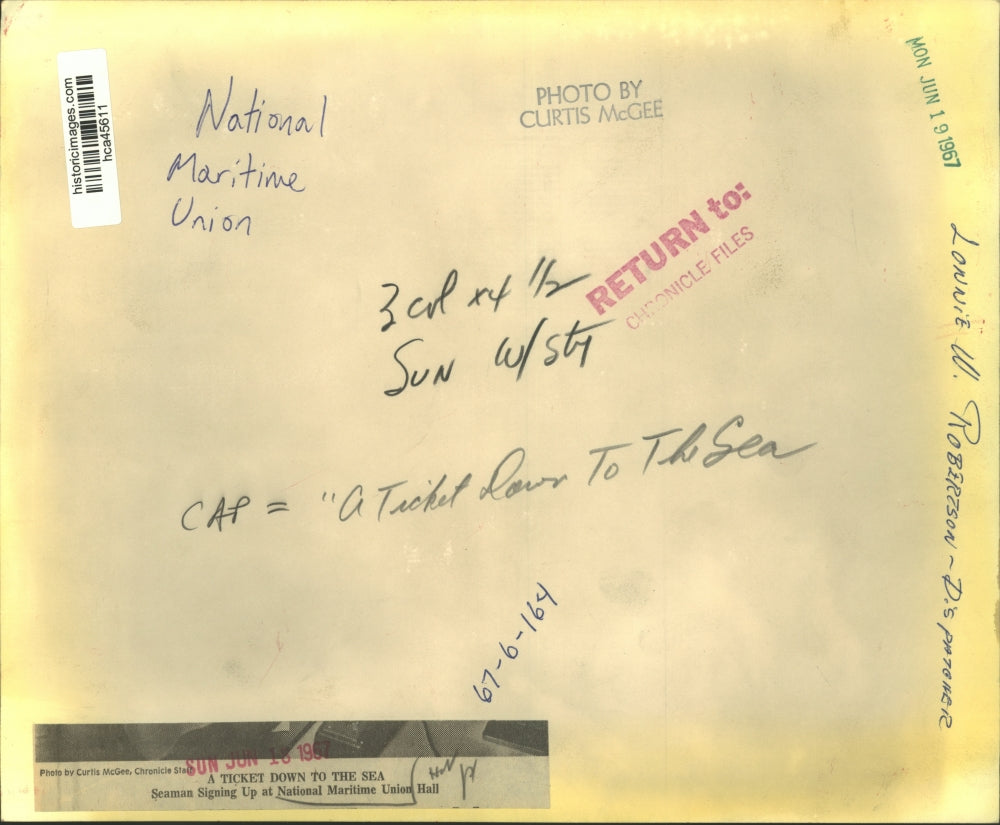 historicimages.com
hca45611
National
Maritime
Union
PHOTO BY
CURTIS McGEE
MON JUN 19 1967
RETURN to:
CHRONICLE FILES
3 col x4 1/2
SUN W/Sty
LONNIE W. ROBERTSON - DISPATCHER
CAP = "A Ticket Down To The Sea
67-6-164
SUN JUN 18 1967
Photo by Curtis McGee, Chronicle Staff
A TICKET DOWN TO THE SEA
Seaman Signing Up at National Maritime Union Hall